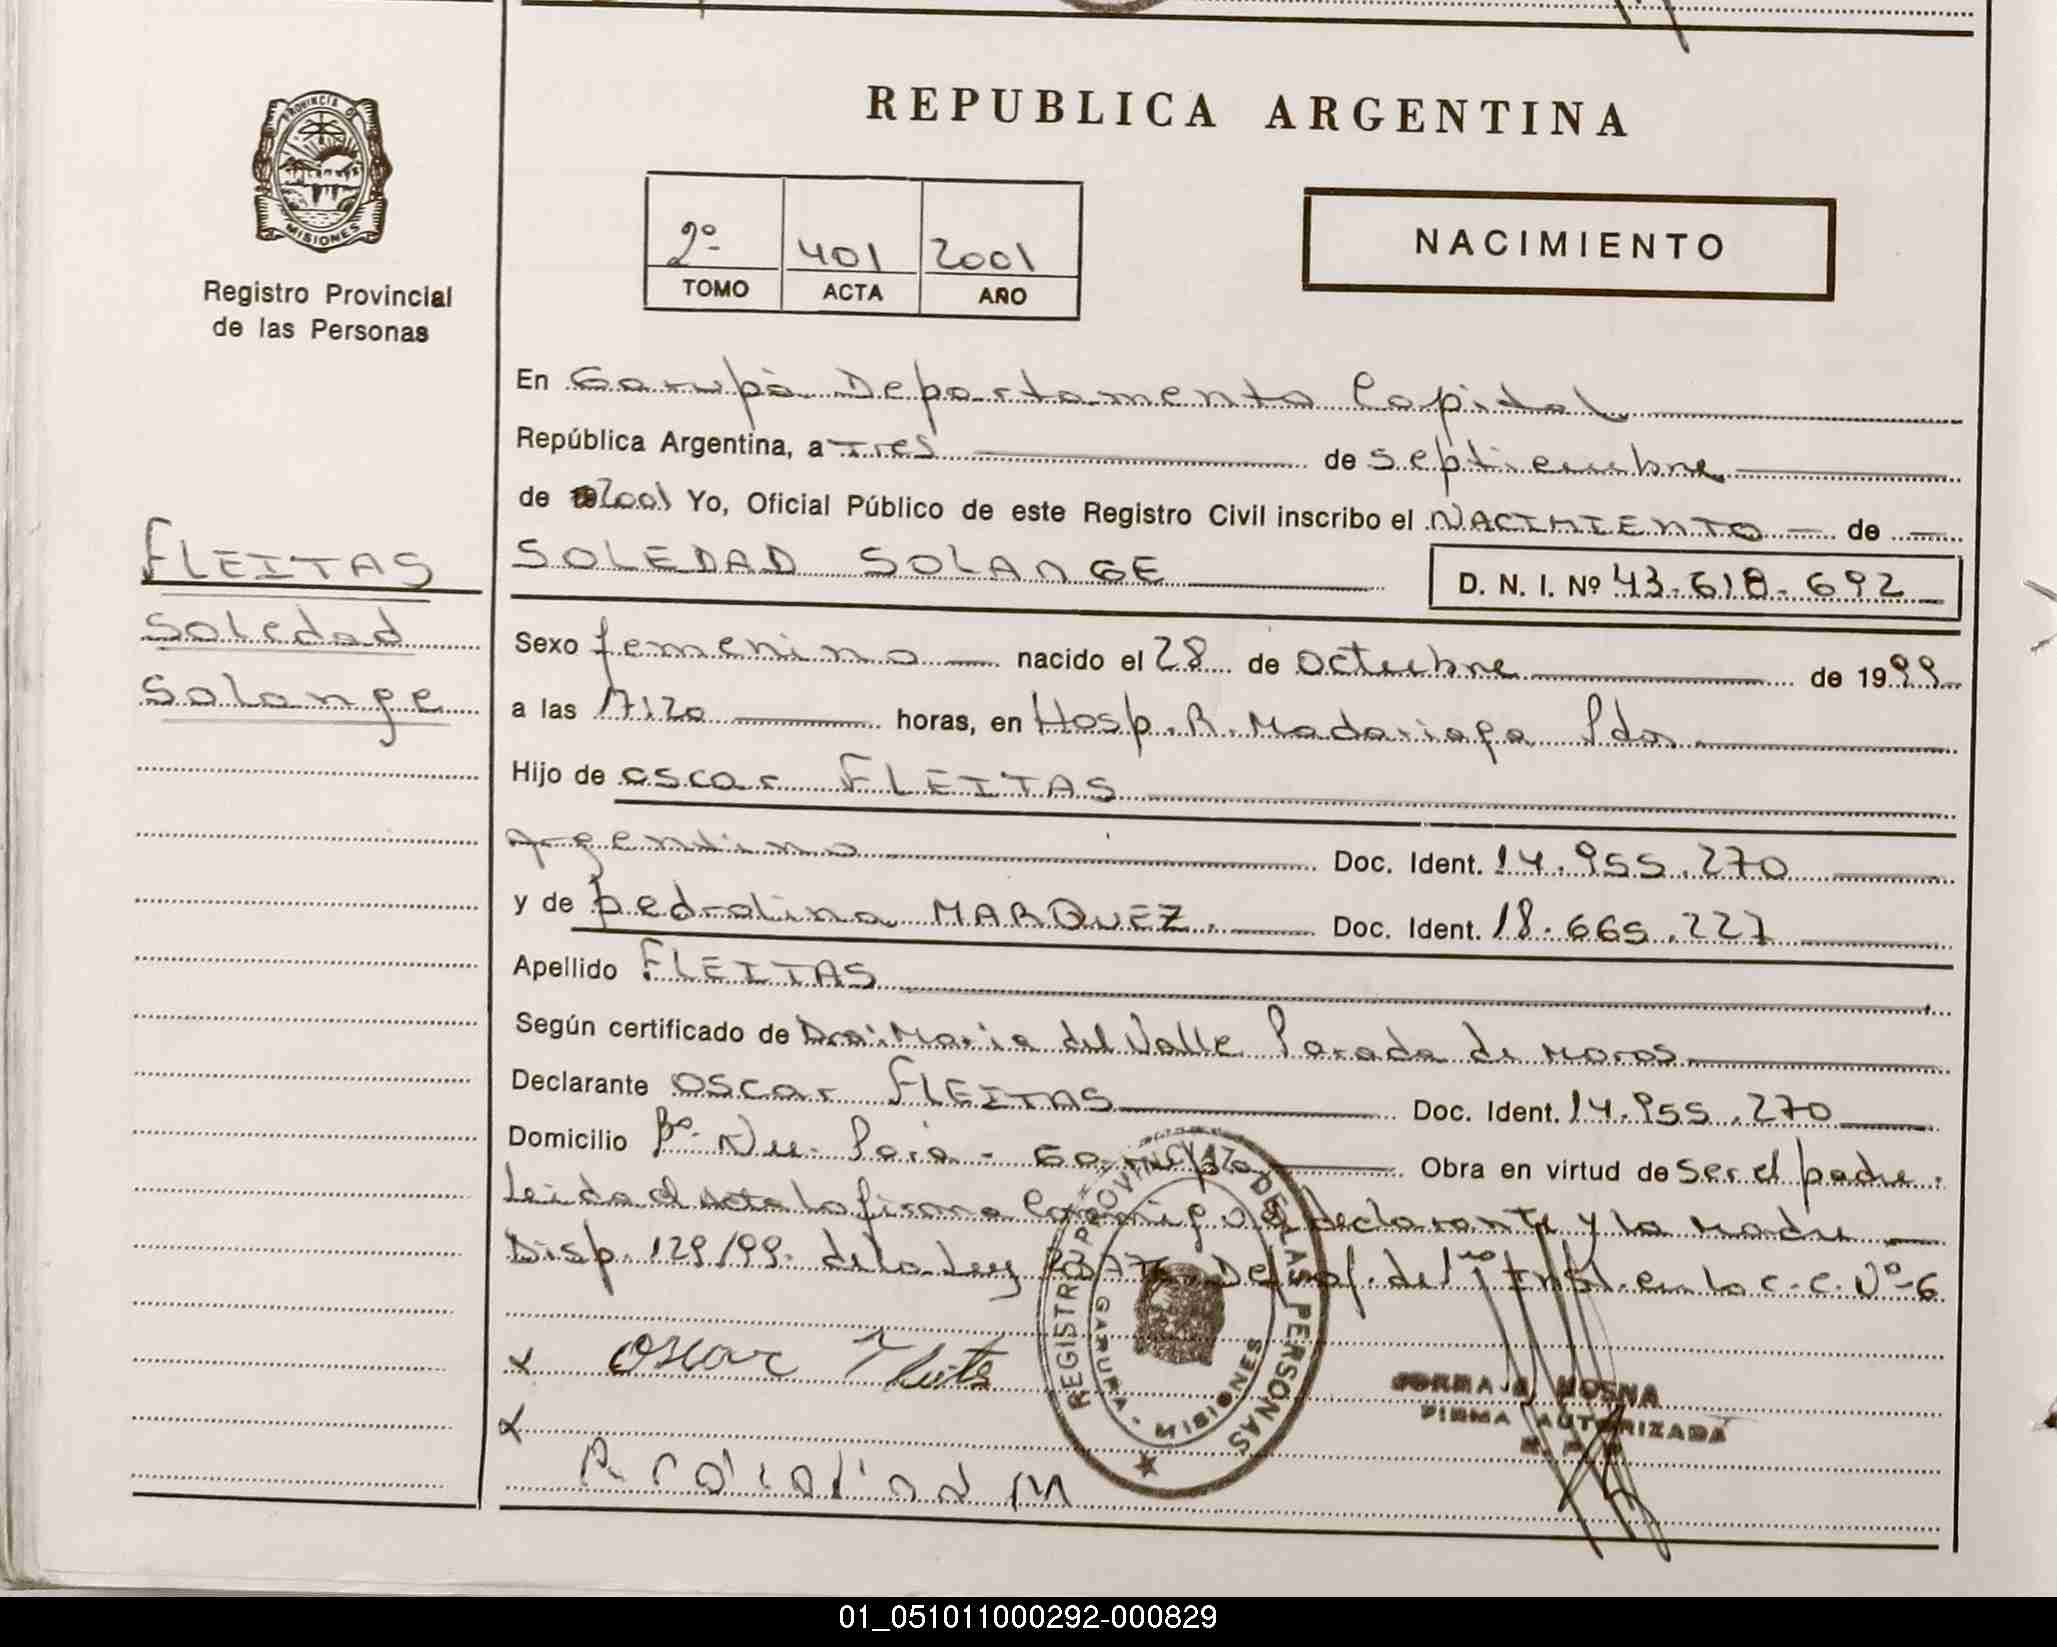 REPUBLICA ARGENTINA
PROVINCIA DE
MISIONES
Registro Provincial
de las Personas
2º 401 2001
TOMO ACTA AÑO
NACIMIENTO
En Garupá Departamento Capital
República Argentina, a Tres de septiembre
de 2001 Yo, Oficial Público de este Registro Civil inscribo el NACIMIENTO de
FLEITAS
Soledad
Solange
SOLEDAD SOLANGE D. N. I. Nº 43.618.692
Sexo femenino nacido el 28 de octubre de 1999
a las 17:20 horas, en Hosp. R. Madariaga Pdas
Hijo de oscar FLEITAS
argentino Doc. Ident. 14.955.270
y de pedrolina MARQUEZ. Doc. Ident. 18.665.227
Apellido FLEITAS
Según certificado de Dra: Maria del Valle Parada de Moros
Declarante oscar FLEITAS Doc. Ident. 14.955.270
Domicilio Bº Ñu-Porá - Garupá Obra en virtud de ser el padre.
Leida el Acta la firma Conmigo el declarante y la Madre
Disp. 129/99. de la Ley del 1º Inst. en lo C. C. Nº 6
x oscar Fleita
x
REGISTRO PROVINCIAL DE LAS PERSONAS
GARUPA - MISIONES
NORMA MOSNA
FIRMA AUTORIZADA
01_051011000292-000829